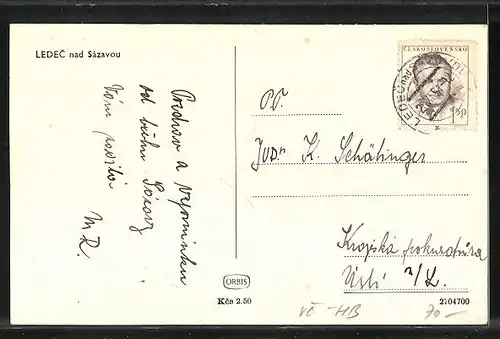 LEDEČ nad Sázavou
Pozdrav a vzpomínku
od břehu Sázavy
Vám posílá
M R.
ČESKOSLOVENSKO
LEDEČ nad
P.T.
JUDr K. Schätinger
Krajská prokuratura
Ústí n/L.
ORBIS
Kčs 2.50
2704700
VČ -HB
70-